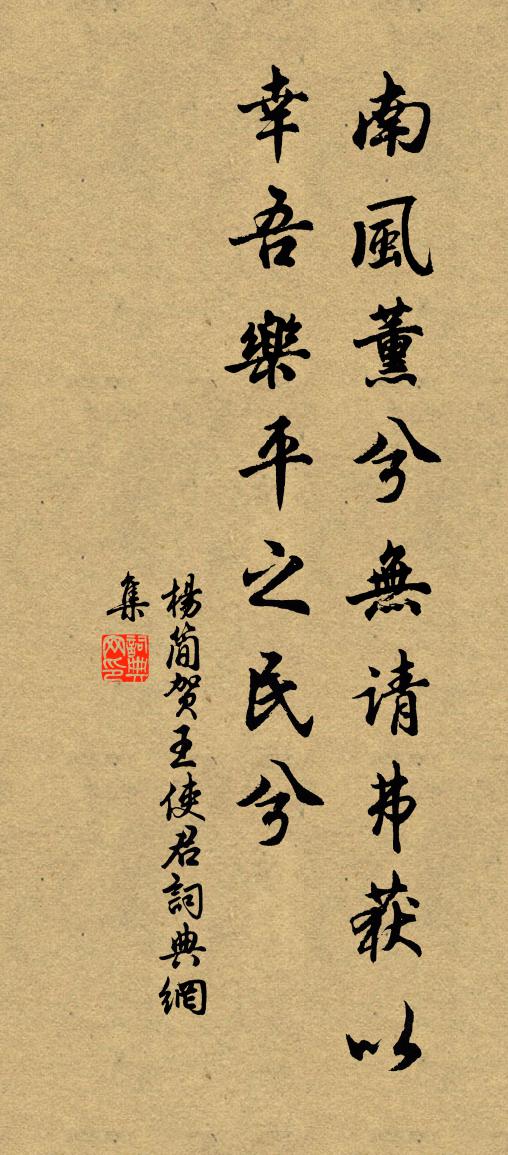 南風薰兮無请弗获以
幸吾樂平之民兮
楊簡贺王使君詞典網
集
詞典
网印